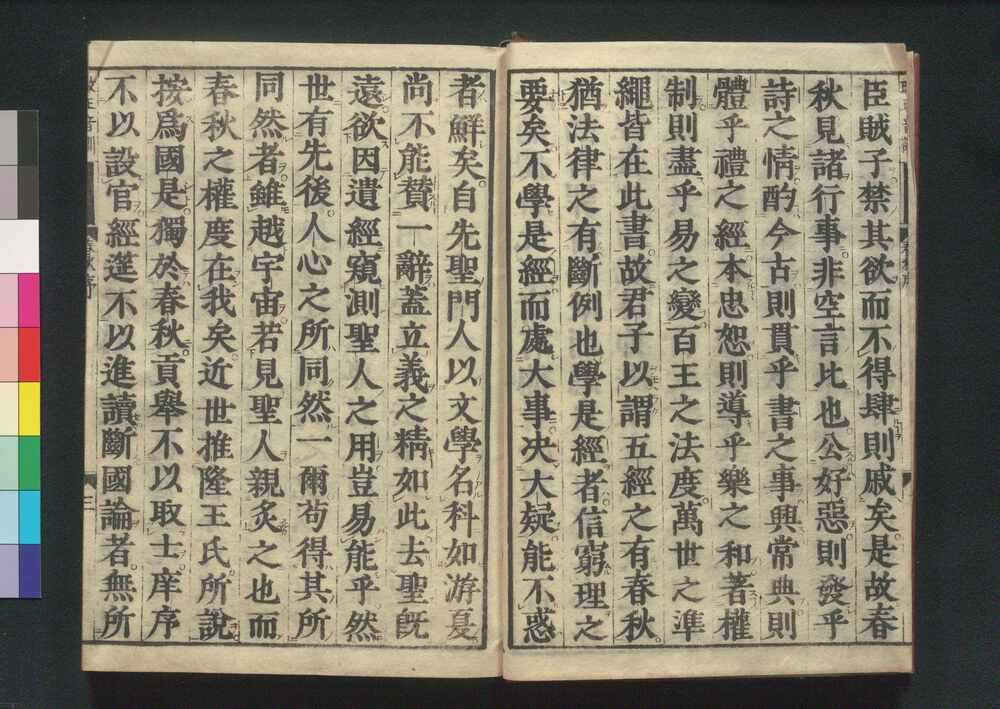 臣賊子禁其欲而不得肆則戚矣是故春
秋見諸行事非空言比也公好惡則發乎
詩之情酌今古則貫乎書之事興常典則
體乎禮之經本忠恕則導乎樂之和著權
制則盡乎易之變百王之法度萬世之準
繩皆在此書故君子以謂五經之有春秋
猶法律之有斷例也學是經者信窮理之
要矣不學是經而處大事决大疑能不惑
者鮮矣自先聖門人以文學名科如游夏
尚不能賛一辭蓋立義之精如此去聖既
遠欲因遺經窺測聖人之用豈易能乎然
世有先後人心之所同然一爾苟得其所
同然者雖越宇宙若見聖人親炙之也而
春秋之權度在我矣近世推隆王氏所說
按爲國是獨於春秋貢舉不以取士庠序
不以設官經筵不以進讀斷國論者無所
三